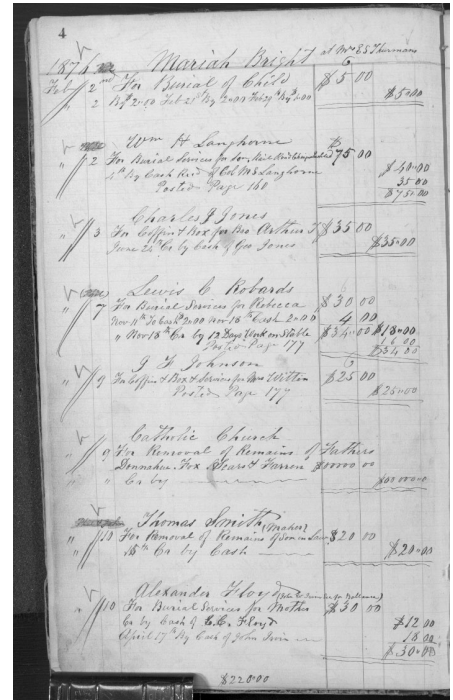 4
Mariah Bright at Mrs E S Thurmans
187
Feb 2nd For Burial of Child $5 00
2 By 2.00 Feb By 2.00 Feb 29 By 1.00 $5.00
Wm H Langhorne
" 2 For Burial Services for Son $75 00
4th By Cash Recd of Col M S Langhorne $40.00
Posted Page 160 35 00
$75.00
Charles J Jones
" 3 For Coffin & Box for Bro Arthur J $35 00
June 24th Cr by Cash of Geo Jones $35.00
Lewis C Robards
" 7 For Burial Services for Rebecca $30 00
Nov 11th To Cash 2.00 Nov 18th Cash 2.00 4 00
" Nov 18th Cr by 12 Days Work on Stable $34.00 $18.00
Posted Page 177 16 00
$34 00
J F Johnson
" 9 For Coffin & Box & Services for Mrs Witton $25 00
Posted Page 177 $25.00
Catholic Church
" 9 For Removal of Remains of Fathers
Donnahue Fox Sears & Farren $0000 00
" " Cr by $00000
Thomas Smith (Maker)
" 10 For Removal of Remains of Son in Law $20 00
" 15th Cr by Cash $20.00
Alexander Floyd
" 10 For Burial Services for Mother $30 00
Cr by Cash of C.C. Floyd $12 00
April 17th By Cash of John Irvin 18 00
$30.00
$220.00